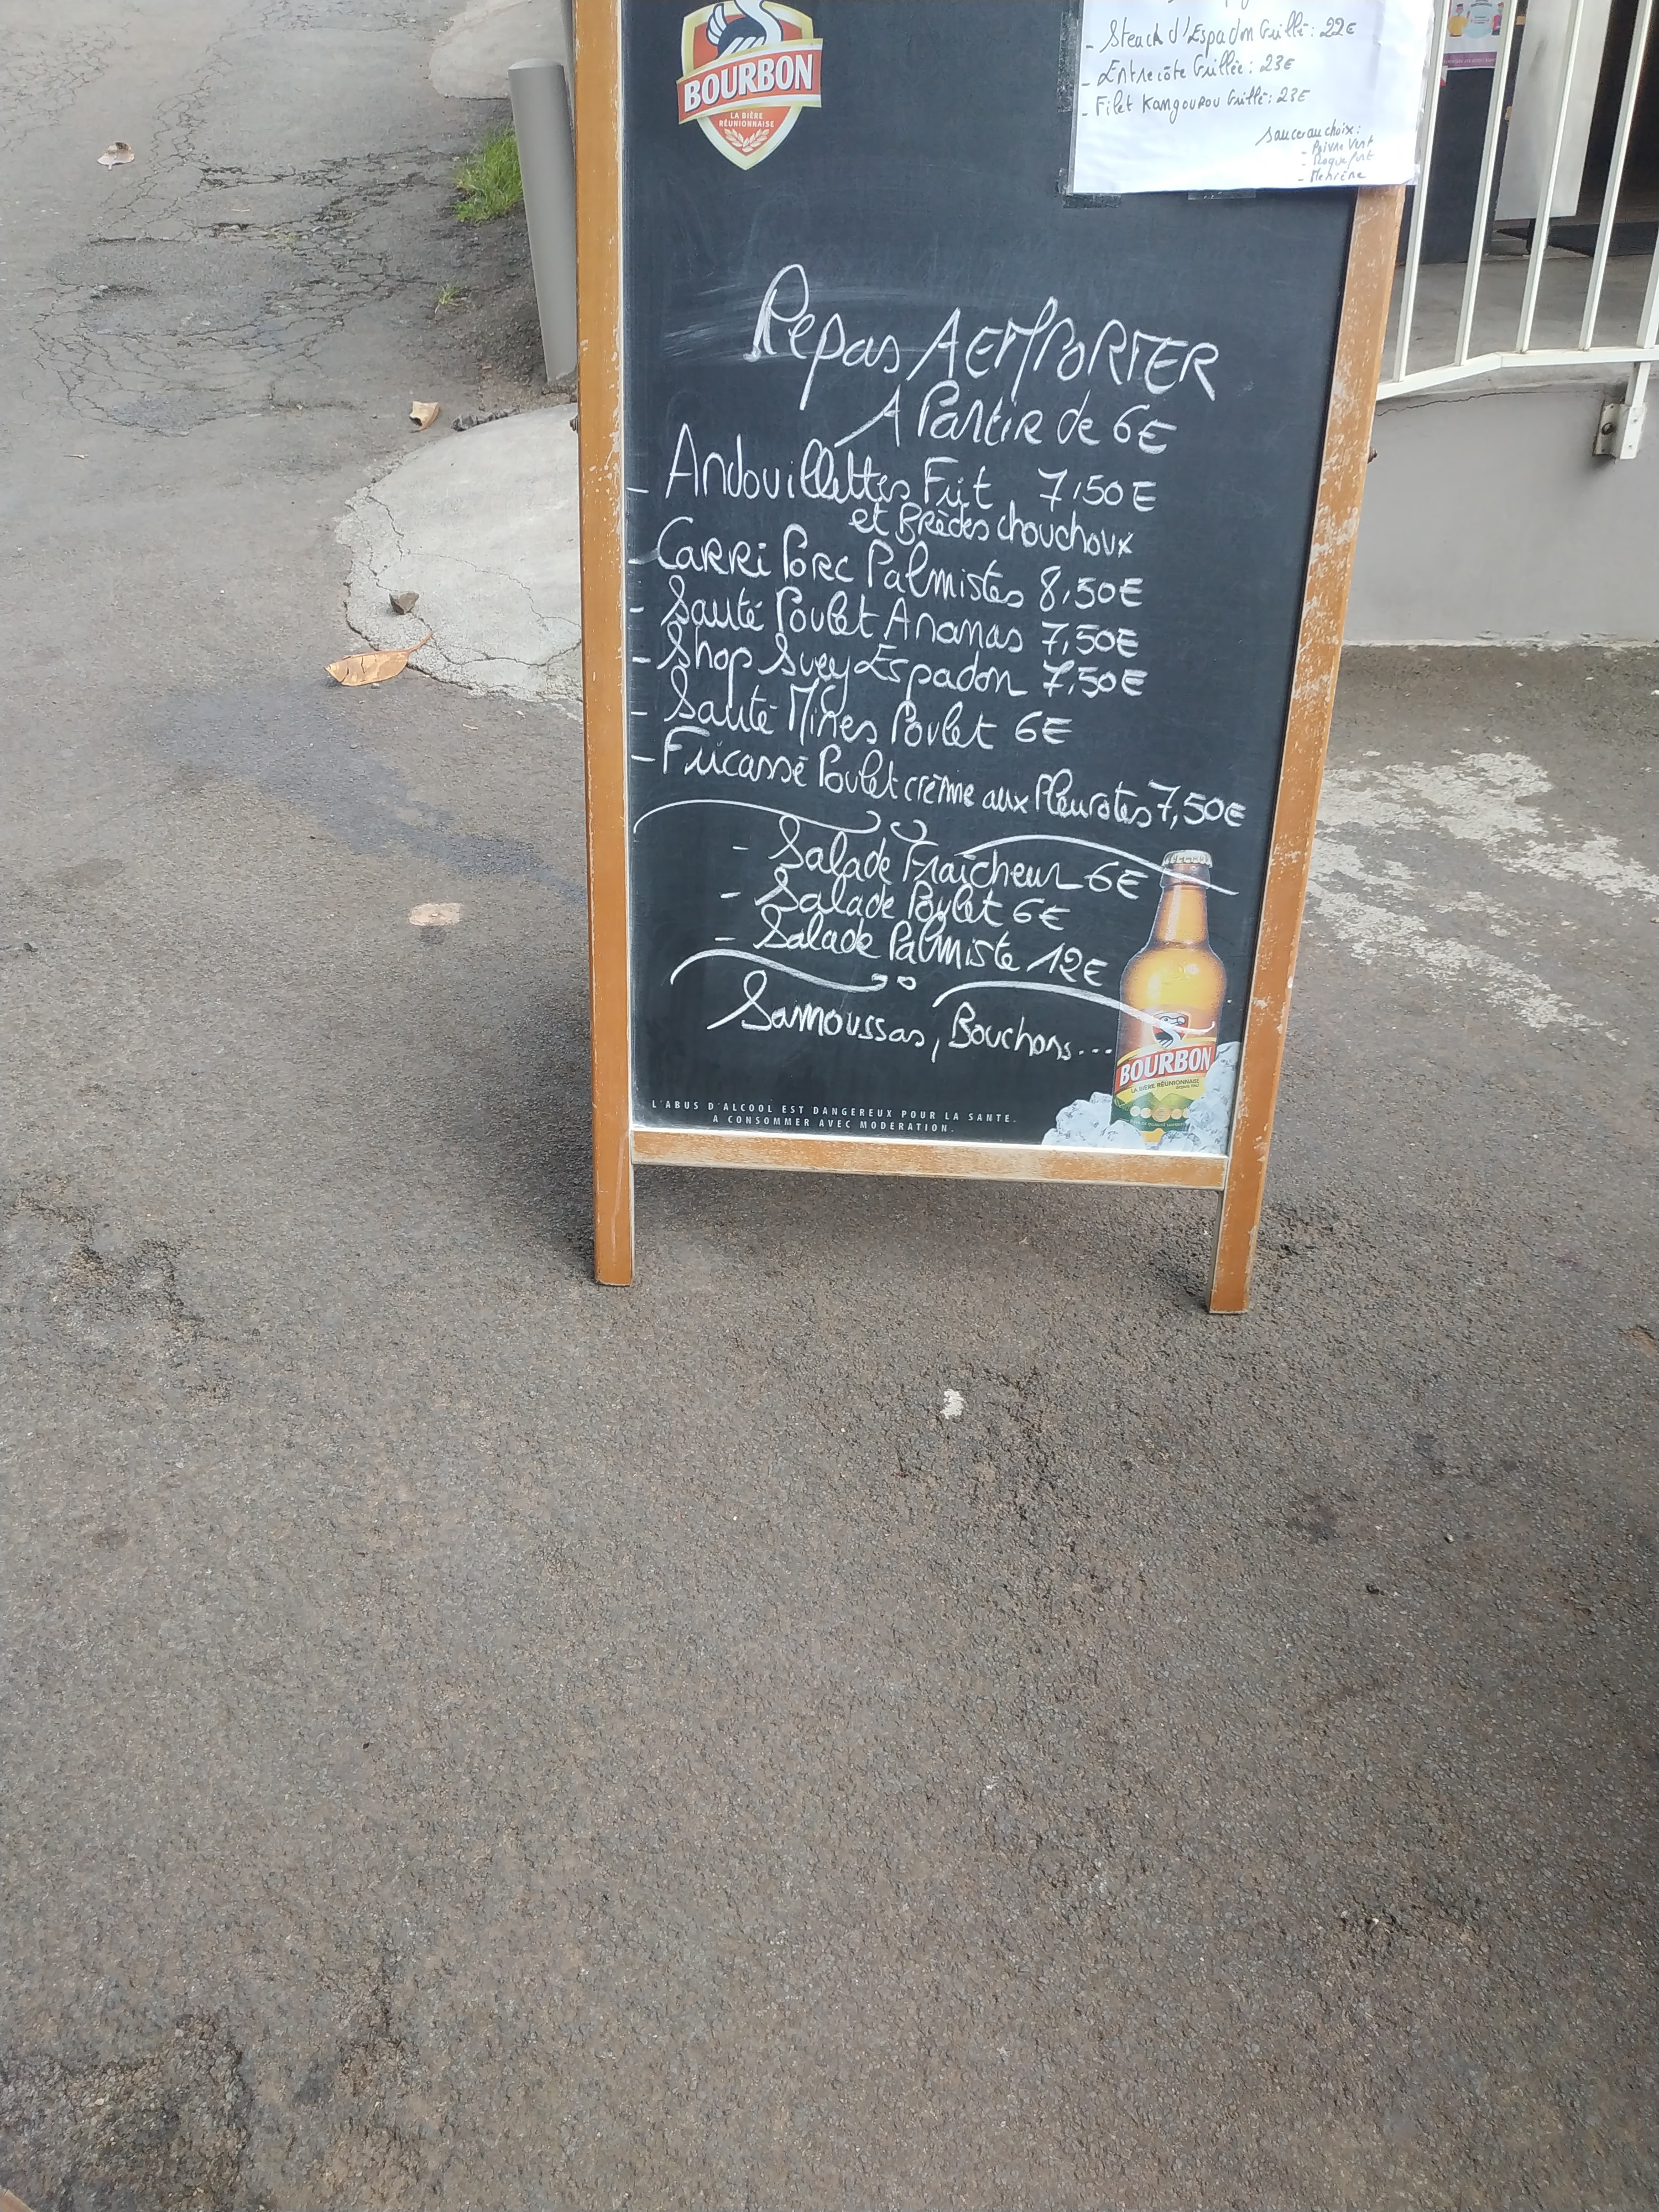 BOURBON
LA BIÈRE
RÉUNIONNAISE
- Steack d'Espadon Grillé : 22€
- Entrecôte Grillée : 23€
- Filet Kangourou Grillé : 23€
Sauce au choix :
- Poivre Vert
- Roquefort
Repas A EMPORTER
A Partir de 6€
- Andouillettes Frit 7,50€
et Brèdes chouchoux
- Carri Porc Palmistes 8,50€
- Sauté Poulet Ananas 7,50€
- Shop Suey Espadon 7,50€
- Sauté Mines Poulet 6€
- Fricassé Poulet crème aux Pleurotes 7,50€
- Salade Fraîcheur 6€
- Salade Poulet 6€
- Salade Palmiste 12€
Samoussas, Bouchons...
BOURBON
LA BIÈRE RÉUNIONNAISE
L'ABUS D'ALCOOL EST DANGEREUX POUR LA SANTE.
A CONSOMMER AVEC MODERATION.